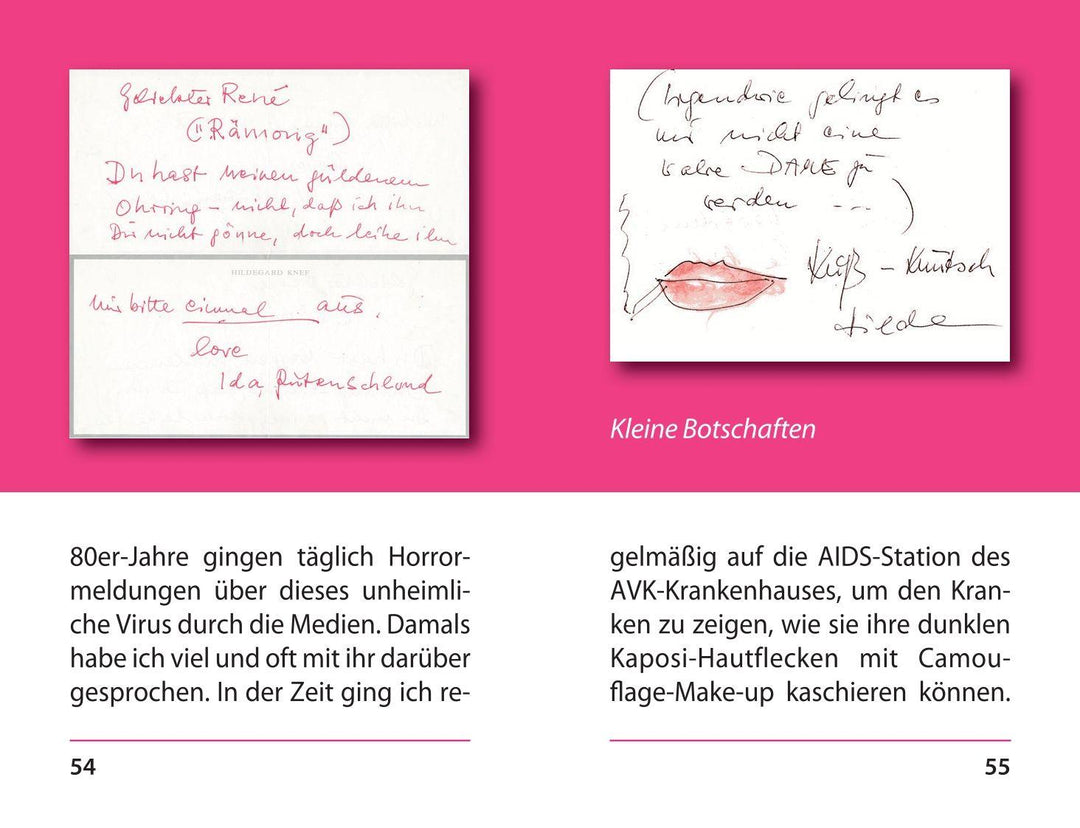 Geliebter René
("Rämong")
Du hast meinen güldenen
Ohrring – nicht, daß ich ihn
Dir nicht gönne, doch leihe ihn
HILDEGARD KNEF
mir bitte einmal aus,
love
Ida Rutenschlond
(Irgendwie gelingt es
mir nicht eine
wahre DAME zu
werden ---)
Kuß – Knutsch
Kleine Botschaften
80er-Jahre gingen täglich Horror-
meldungen über dieses unheimli-
che Virus durch die Medien. Damals
habe ich viel und oft mit ihr darüber
gesprochen. In der Zeit ging ich re-
54
gelmäßig auf die AIDS-Station des
AVK-Krankenhauses, um den Kran-
ken zu zeigen, wie sie ihre dunklen
Kaposi-Hautflecken mit Camou-
flage-Make-up kaschieren können.
55